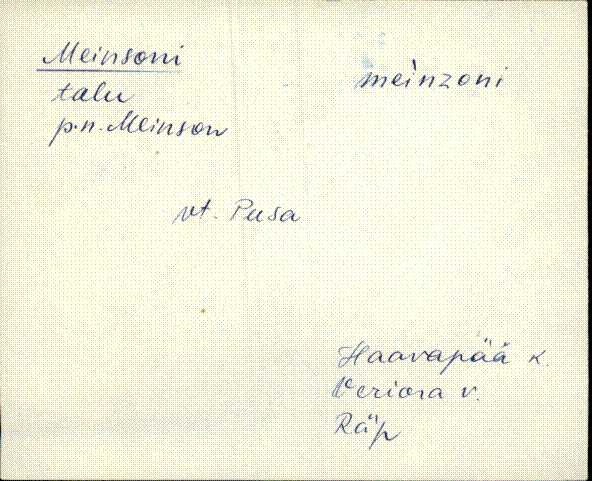 Meinsoni
meìnzoni
talu
p.n. Meinson
vt. Pusa
Haavapää k.
Veriora v.
Räp